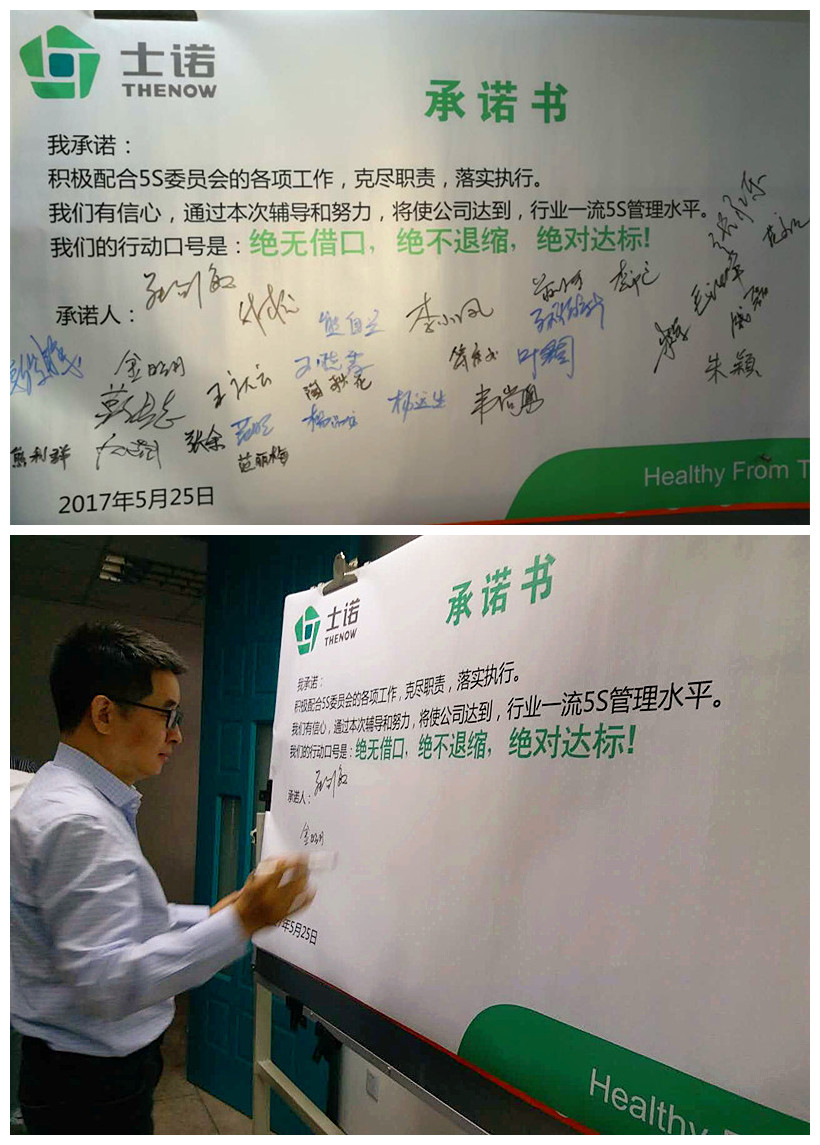 士诺
THENOW
承诺书
我承诺：
积极配合5S委员会的各项工作，克尽职责，落实执行。
我们有信心，通过本次辅导和努力，将使公司达到，行业一流5S管理水平。
我们的行动口号是：绝无借口，绝不退缩，绝对达标！
承诺人：
熊自兰 李小凤
金明
陶秋花 叶 朱颖
杨运生
熊利群 张余
范丽梅
2017年5月25日
Healthy From T
士诺
THENOW
承诺书
我承诺：
积极配合5S委员会的各项工作，克尽职责，落实执行。
我们有信心，通过本次辅导和努力，将使公司达到，行业一流5S管理水平。
我们的行动口号是：绝无借口，绝不退缩，绝对达标！
承诺人：
年5月25日
Healthy